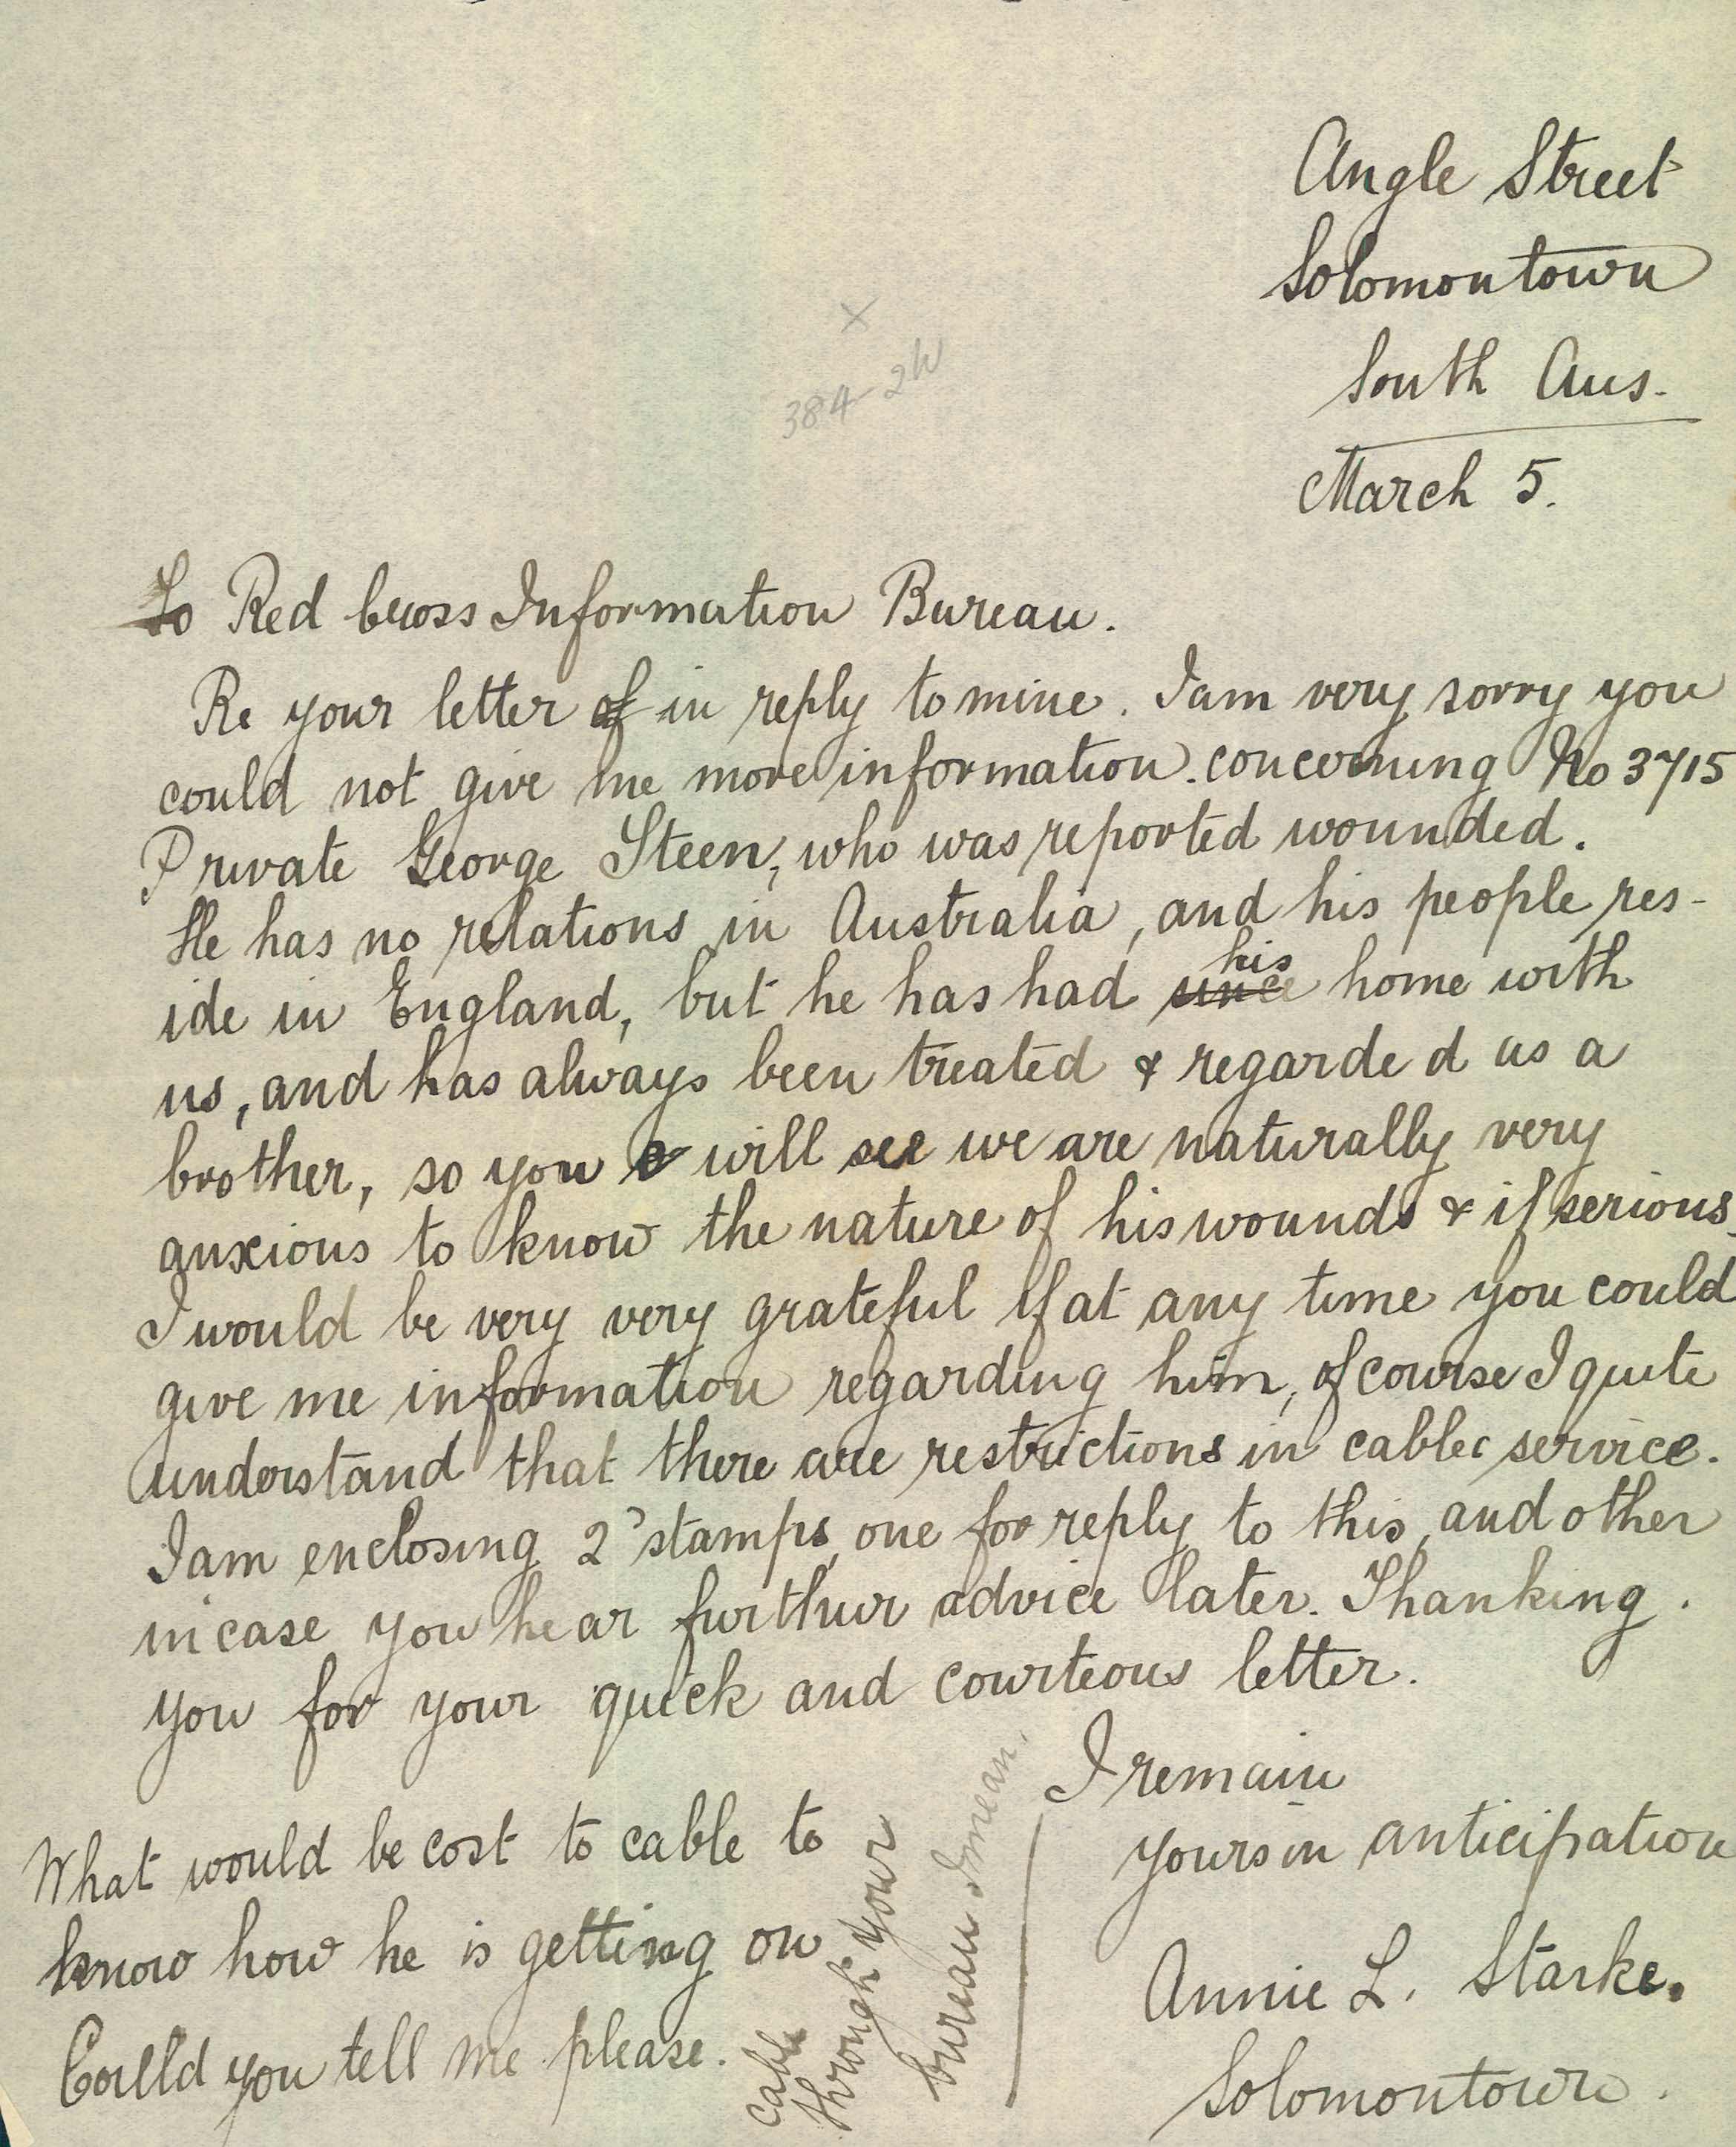 Angle Street
Solomontown
South Aus.
March 5.
X
384-2W
To Red Cross Information Bureau.
Re your letter of in reply to mine. I am very sorry you
could not give me more information. concerning No 3715
Private George Steen, who was reported wounded.
He has no relations in Australia, and his people res-
ide in England, but he has had since his home with
us, and has always been treated & regarded as a
brother, so you will see we are naturally very
anxious to know the nature of his wounds & if serious.
I would be very very grateful if at any time you could
give me information regarding him, of course I quite
understand that there are restrictions in cable service.
I am enclosing 2 stamps, one for reply to this, and other
in case you hear furthur advice later. Thanking.
you for your quick and courteous letter.
I remain
yours in anticipation
Annie L. Starke.
Solomontown.
What would be cost to cable to
know how he is getting on
Could you tell me please.
cable
through your
bureau I mean.